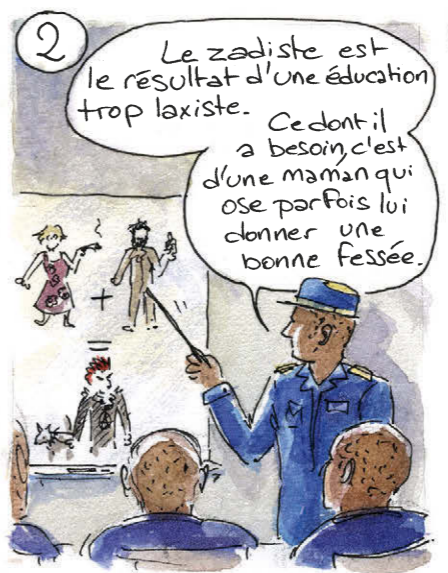 2
Le zadiste est
le résultat d'une éducation
trop laxiste.
Ce dont il
a besoin, c'est
d'une maman qui
ose parfois lui
donner une
bonne fessée.
+
=